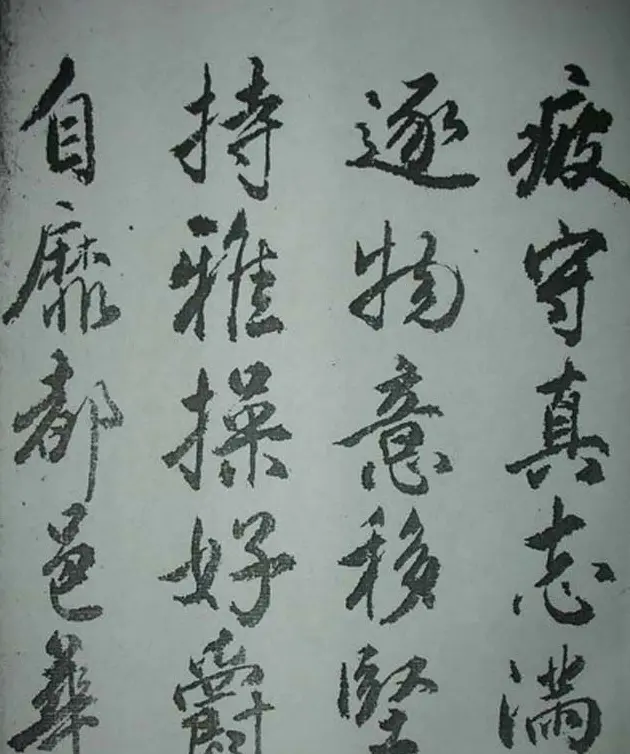 疲守真志满
逐物意移堅
持雅操好爵
自靡都邑華